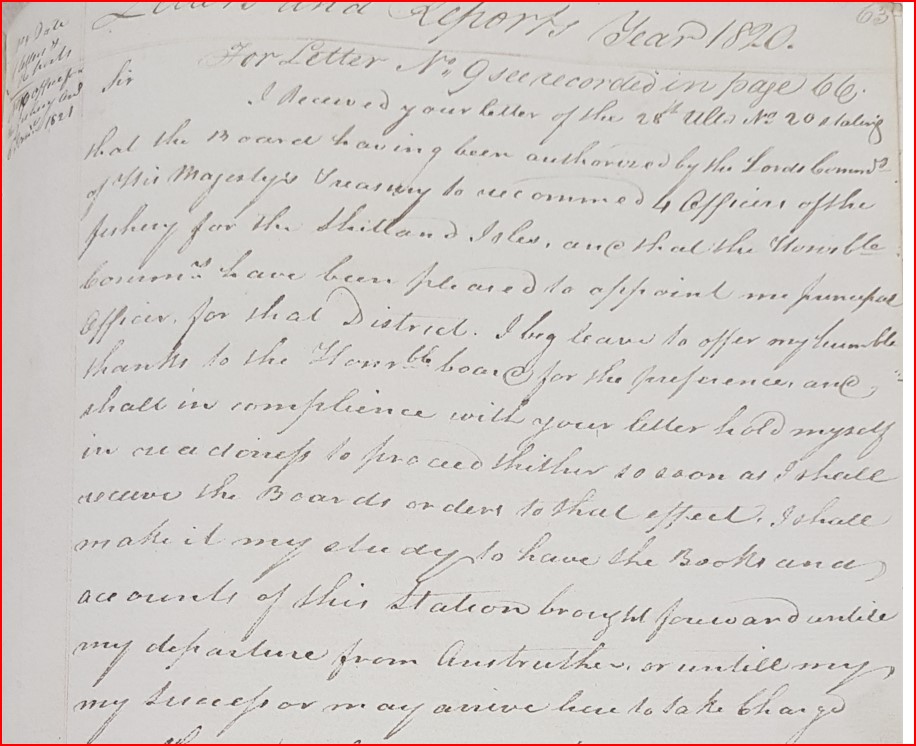 Letters and Reports Year 1820.
65
For Letter No. 9 see recorded in page 66.
Sir
I Received your letter of the 28th Ulto No 20 stating
that the Board having been authorized by the Lords Commrs
of His Majesty's Treasury to recommed 4 Officers of the
fishery for the Shitland Isles, and that the Honrble
Commrs have been pleased to appoint me principal
Officer, for that District. I beg leave to offer my humble
thanks to the Honrble board for the preference, and
shall in complience with your letter hold myself
in readiness to proceed thither so soon as I shall
receive the Boards orders to that effect. I shall
make it my study to have the Books and
accounts of this Station brought forward untill
my departure from Anstruther, or untill my
my Successor may arrive here to take Charge